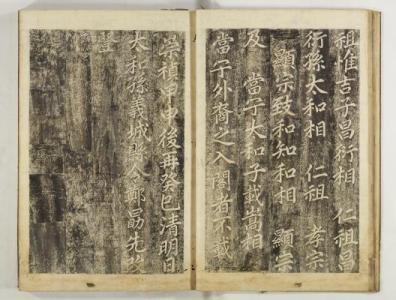 祖惟吉子昌衍相 仁祖昌
衍孫太和相 仁祖 孝宗
顯宗致和知和相 顯宗
及 當宁太和子載嵩相
當宁外裔之入閣者不載
崇禎甲申後再癸巳清明日
太和孫義城縣令鄭勗先改
豎